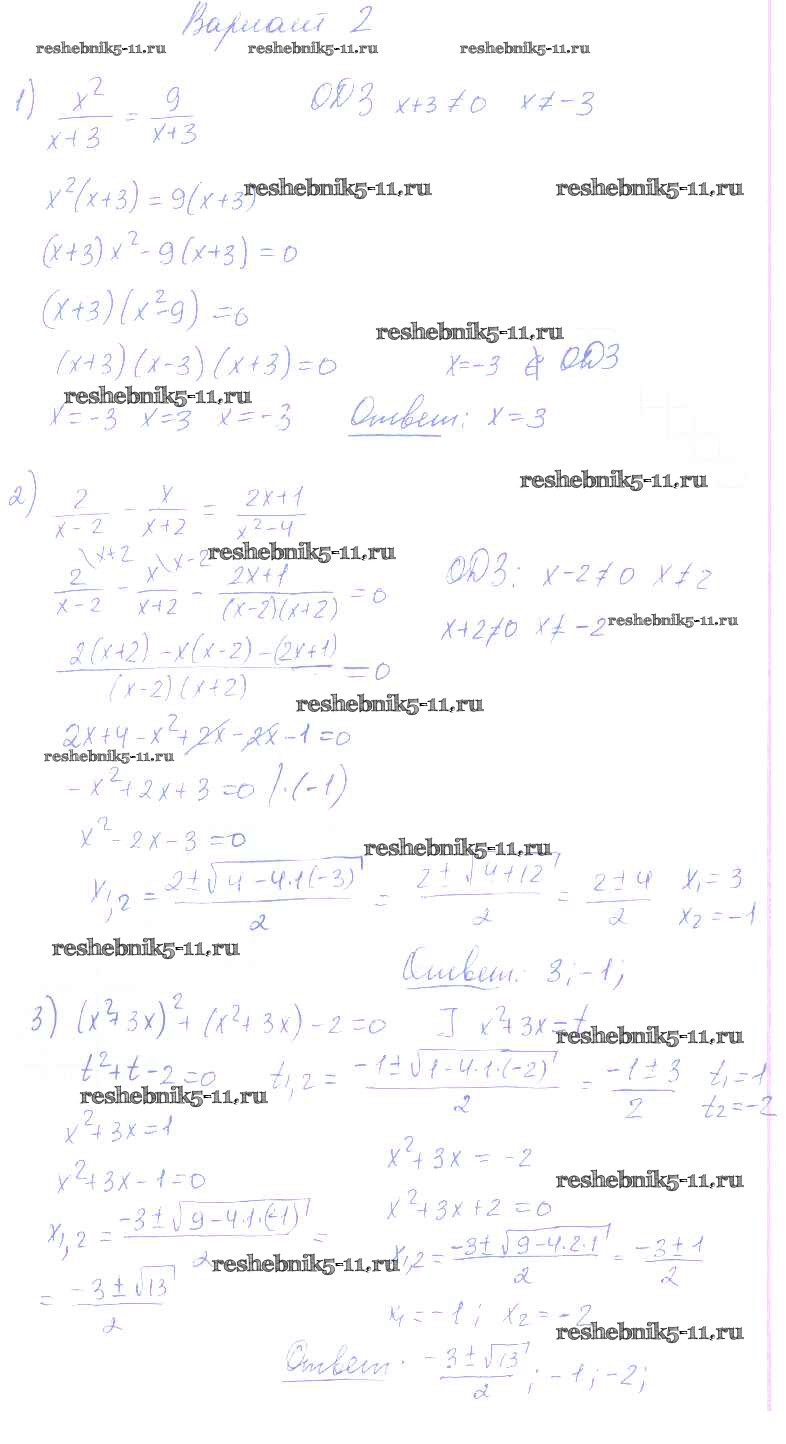 Вариант 2
reshebnik5-11.ru reshebnik5-11.ru reshebnik5-11.ru
1) x²/(x+3) = 9/(x+3) ОДЗ x+3≠0 x≠-3
x²(x+3) = 9(x+3)
reshebnik5-11.ru reshebnik5-11.ru
(x+3)x² - 9(x+3) = 0
(x+3)(x²-9) = 0
reshebnik5-11.ru
(x+3)(x-3)(x+3) = 0 x=-3 ∉ ОДЗ
reshebnik5-11.ru
x=-3 x=3 x=-3 Ответ: x=3
reshebnik5-11.ru
2) 2/(x-2) - x/(x+2) = (2x+1)/(x²-4)
reshebnik5-11.ru
2/(x-2) \x+2 - x/(x+2) \x-2 - (2x+1)/((x-2)(x+2)) = 0 ОДЗ: x-2≠0 x≠2
x+2≠0 x≠-2
reshebnik5-11.ru
(2(x+2) - x(x-2) - (2x+1))/((x-2)(x+2)) = 0
reshebnik5-11.ru
2x+4-x²+2x-2x-1=0
reshebnik5-11.ru
-x²+2x+3=0 /·(-1)
x²-2x-3=0
reshebnik5-11.ru
x1,2 = (2±√(4-4·1(-3)))/2 = (2±√(4+12))/2 = (2±4)/2 x₁=3
x₂=-1
reshebnik5-11.ru
Ответ: 3; -1;
3) (x²+3x)²+(x²+3x)-2=0 ] x²+3x=t
reshebnik5-11.ru
t²+t-2=0 t1,2 = (-1±√(1-4·1·(-2)))/2 = (-1±3)/2 t₁=1
t₂=-2
reshebnik5-11.ru
x²+3x=1
x²+3x=-2
x²+3x-1=0
reshebnik5-11.ru
x²+3x+2=0
x1,2 = (-3±√(9-4·1·(-1)))/2 =
reshebnik5-11.ru
x1,2 = (-3±√(9-4·2·1))/2 = (-3±1)/2
= (-3±√13)/2
x₁=-1; x₂=-2
reshebnik5-11.ru
Ответ: (-3±√13)/2; -1; -2;